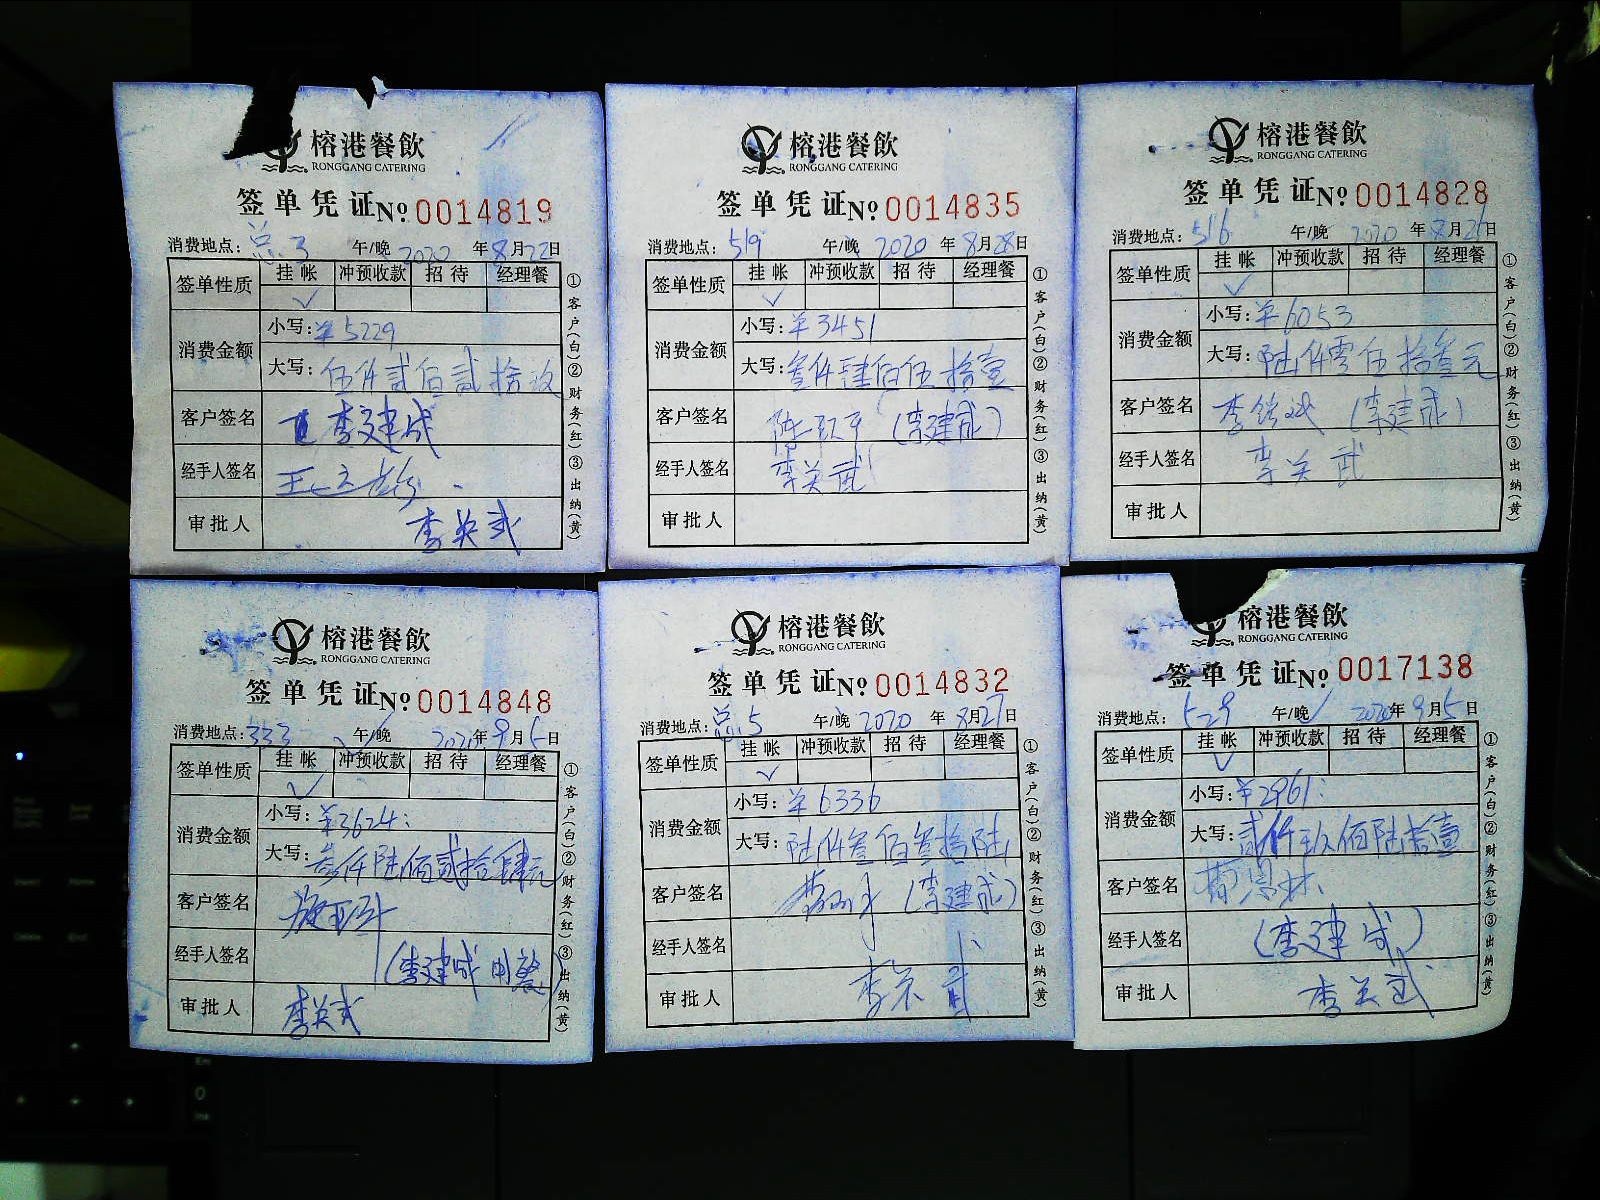 榕港餐飲
RONGGANG CATERING
签单凭证 No 0014819
消费地点: 总3 午/晚 2020年8月22日
签单性质 挂帐 冲预收款 招待 经理餐
✓
消费金额 小写: ¥5229
大写: 伍仟贰佰贰拾玖
客户签名 李建成
经手人签名
审批人 李英武
①客户(白)②财务(红)③出纳(黄)
榕港餐飲
RONGGANG CATERING
签单凭证 No 0014835
消费地点: 519 午/晚 2020年8月28日
签单性质 挂帐 冲预收款 招待 经理餐
✓
消费金额 小写: ¥3451
大写: 叁仟肆佰伍拾壹
客户签名 (李建成)
经手人签名 李英武
审批人
①客户(白)②财务(红)③出纳(黄)
榕港餐飲
RONGGANG CATERING
签单凭证 No 0014828
消费地点: 516 午/晚 2020年8月26日
签单性质 挂帐 冲预收款 招待 经理餐
✓
消费金额 小写: ¥6053
大写: 陆仟零伍拾叁元
客户签名 (李建成)
经手人签名 李英武
审批人
①客户(白)②财务(红)③出纳(黄)
榕港餐飲
RONGGANG CATERING
签单凭证 No 0014848
消费地点: 333 午/晚 2020年9月5日
签单性质 挂帐 冲预收款 招待 经理餐
✓
消费金额 小写: ¥3624:
大写: 叁仟陆佰贰拾肆元
客户签名
经手人签名 (李建成用餐)
审批人 李英武
①客户(白)②财务(红)③出纳(黄)
榕港餐飲
RONGGANG CATERING
签单凭证 No 0014832
消费地点: 总5 午/晚 2020年8月27日
签单性质 挂帐 冲预收款 招待 经理餐
✓
消费金额 小写: ¥6336
大写: 陆仟叁佰叁拾陆
客户签名 (李建成)
经手人签名
审批人 李英武
①客户(白)②财务(红)③出纳(黄)
榕港餐飲
RONGGANG CATERING
签单凭证 No 0017138
消费地点: 529 午/晚✓ 2020年9月5日
签单性质 挂帐 冲预收款 招待 经理餐
✓
消费金额 小写: ¥2961:
大写: 贰仟玖佰陆拾壹
客户签名
经手人签名 (李建成)
审批人 李英武
①客户(白)②财务(红)③出纳(黄)